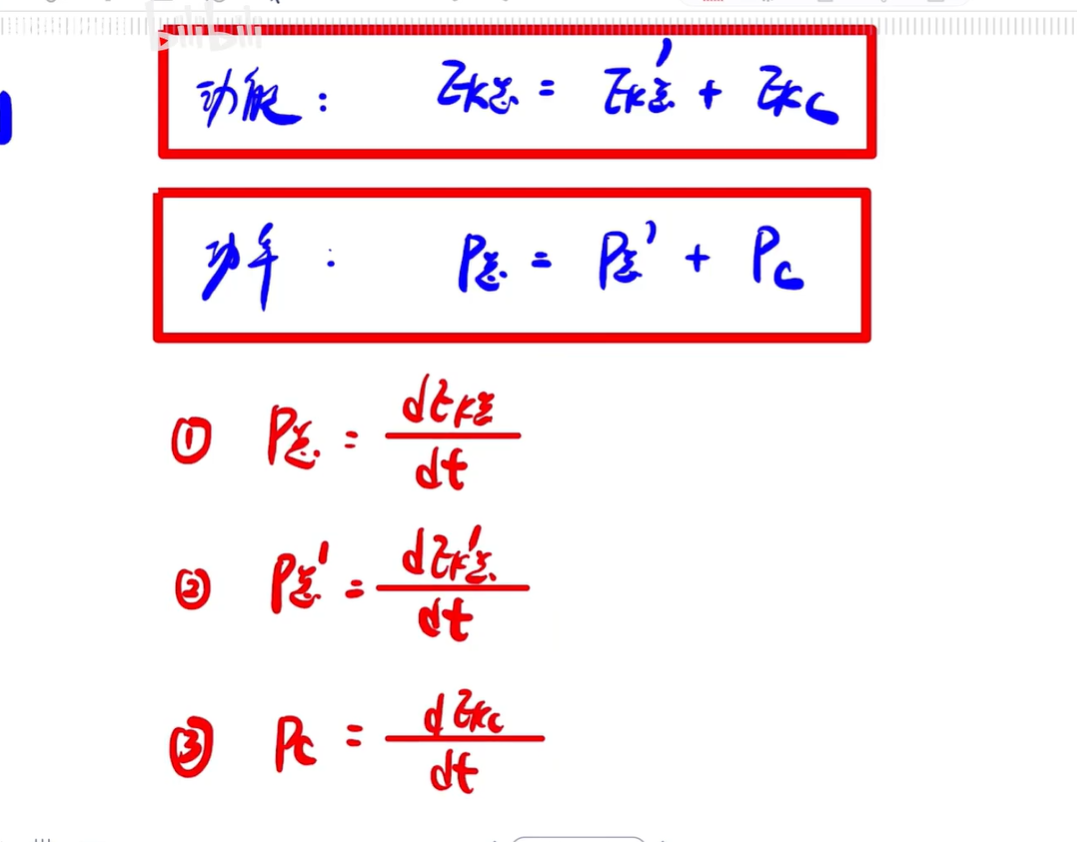 bilibili
动能： Eₖ总 = Eₖ总' + Eₖc
功率： P总 = P总' + Pc
① P总 = dEₖ总/dt
② P总' = dEₖ'总/dt
③ Pc = dEₖc/dt